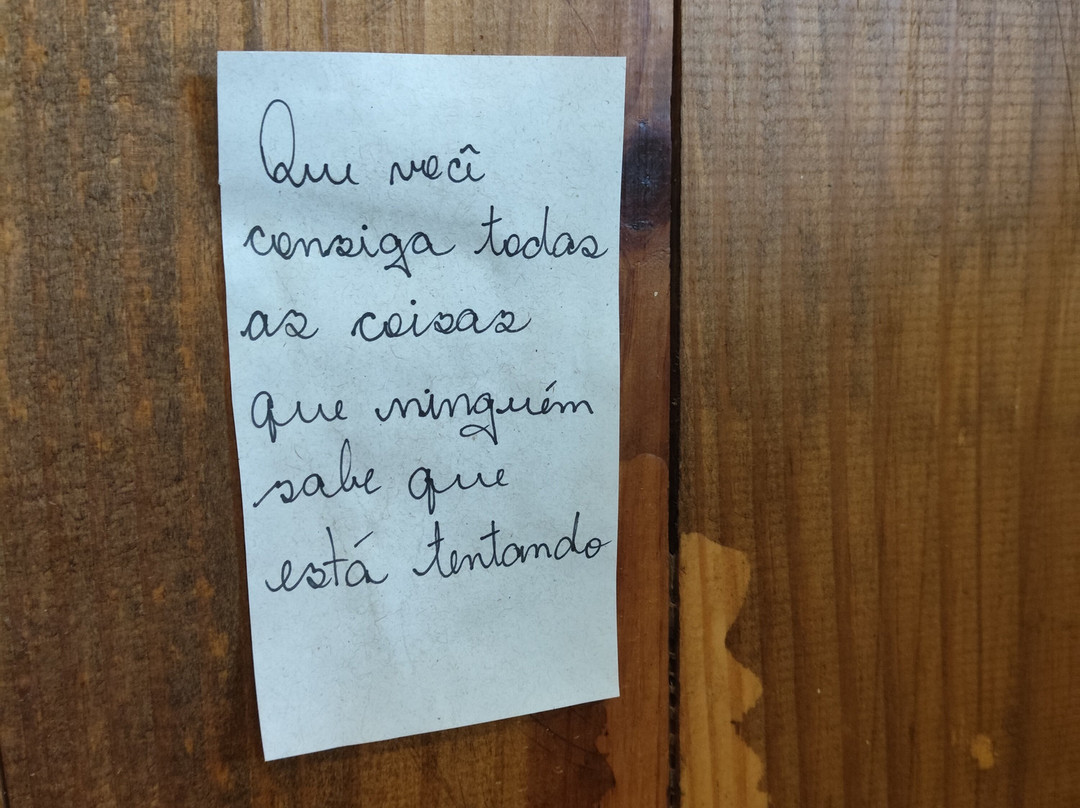 Que você
consiga todas
as coisas
que ninguém
sabe que
está tentando